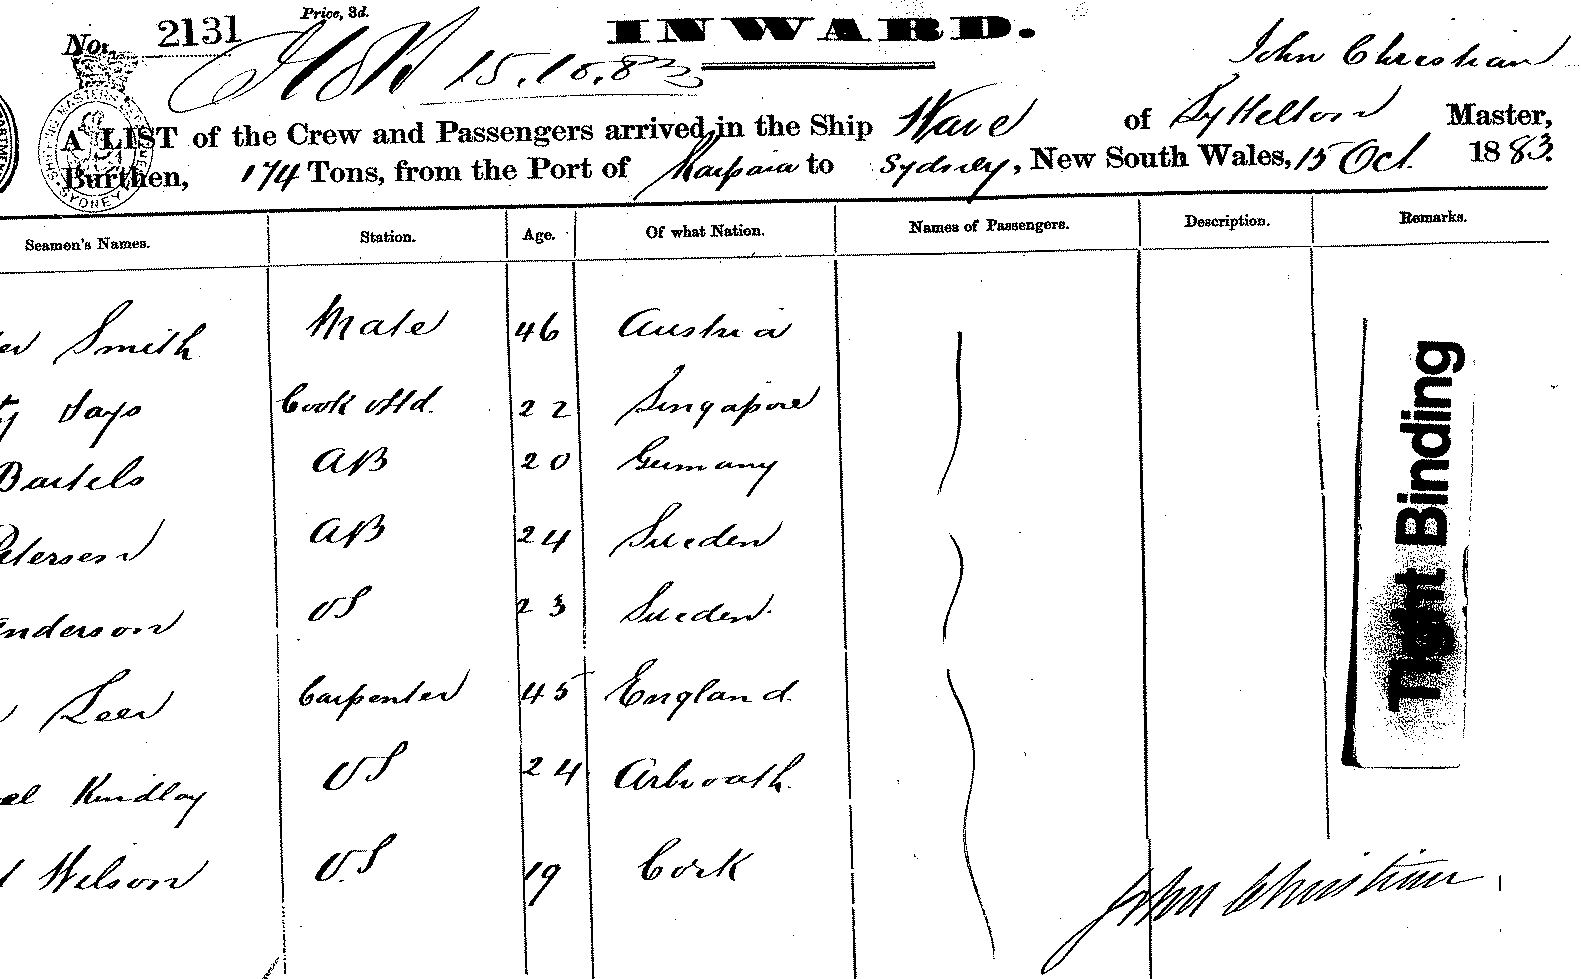 Price, 3d.
No. 2131
INWARD.
15.10.83
John Christian
A LIST of the Crew and Passengers arrived in the Ship Wave of Lyttelton Master,
Burthen, 174 Tons, from the Port of Kaipara to Sydney, New South Wales, 15 Oct. 1883.
Seamen's Names. Station. Age. Of what Nation. Names of Passengers. Description. Remarks.
Smith Mate 46 Austria
Says Cook & Std. 22 Singapore
Bartels AB 20 Germany
Petersen AB 24 Sweden
Anderson OS 23 Sweden
Carpenter 45 England
OS 24 Arbroath
Wilson O.S 19 Cork
John Christian
Tight Binding